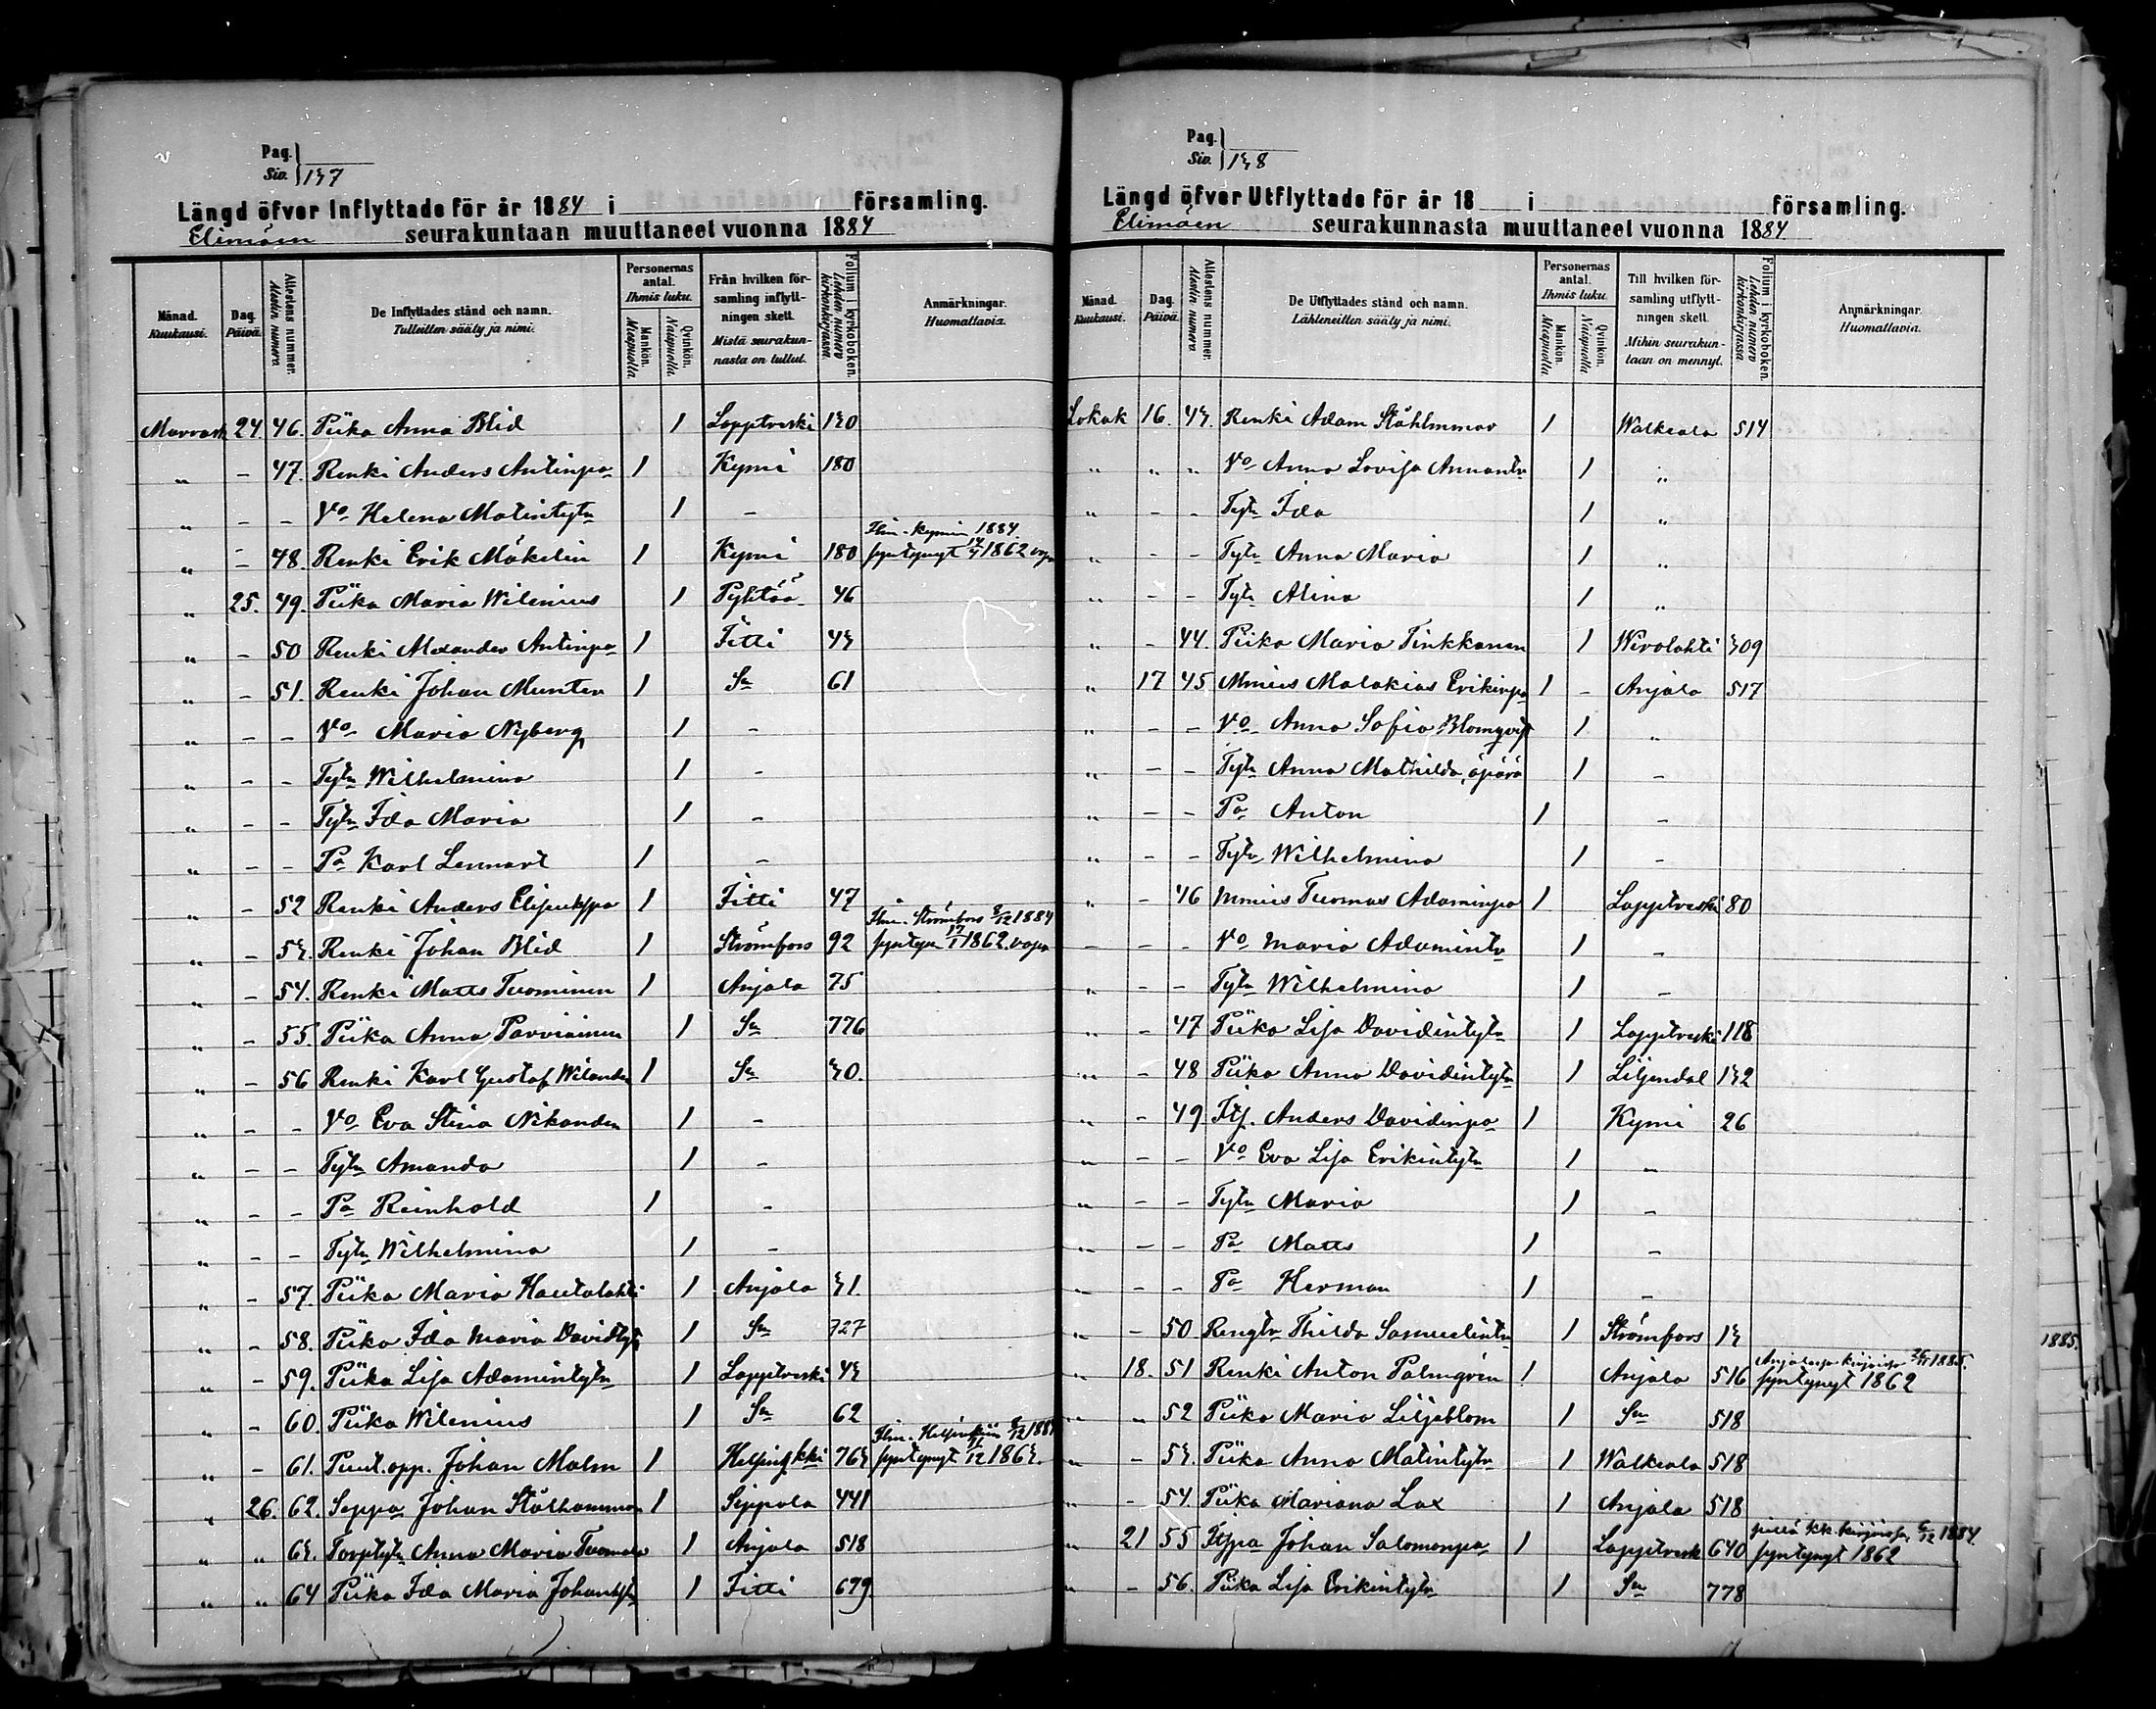 Pag.
Siv. 137
Längd öfver Inflyttade för år 1884 i församling.
Elimäen seurakuntaan muuttaneet vuonna 1884
Månad. Kuukausi.
Dag. Päivä.
Attestens nummer. Alestin numero
De Inflyttades stånd och namn. Tulleitten sääty ja nimi.
Personernas antal. Ihmis luku.
Mankön. Miespuolia
Qvinkön. Naispuolia.
Från hvilken församling inflyttningen skett. Mistä seurakunnasta on tullut.
Folium i kyrkoboken. Lehden numero kirkonkirjassa
Anmärkningar. Huomattavia.
Marrask 24 46. Piika Anna Blid 1 Lapptreski 130
„ – 47. Renki Anders Antinpo 1 Kymi 180
„ – – Vo Helena Matintytr 1 –
„ – 48. Renki Erik Mäkelin 1 Kymi 180 Ilm. Kymin 1884. syntynyt 1862
„ 25. 49. Piika Maria Wilenius 1 Pyhtää 46
„ – 50 Renki Alexander Antinpo 1 Iitti 43
„ – 51. Renki Johan Munter 1 Sn 61
„ – – Vo Maria Nyberg 1 –
„ – – Tytr Wilhelmina 1 –
„ – – Tytr Ida Maria 1 –
„ – – Po Karl Lennart 1 –
„ – 52 Renki Anders Elisukspo 1 Iitti 47
„ – 53. Renki Johan Blid 1 Strömfors 92 Ilm. Strömfors 8/12 1884 syntyn 17/1 1862
„ – 54. Renki Matts Tuominen 1 Anjala 75
„ – 55. Piika Anna Parviainen 1 Sn 776
„ – 56 Renki Karl Gustaf Wilander 1 Sn 30.
„ – – Vo Eva Stina Nikander 1 –
„ – – Tytr Amanda 1 –
„ – – Po Reinhold 1 –
„ – – Tytr Wilhelmina 1 –
„ – 57. Piika Maria Hautalahti 1 Anjala 31.
„ – 58. Piika Ida Maria Davidtytr 1 Sn 727
„ – 59. Piika Lisa Adamintytr 1 Lapptreski 43
„ – 60. Piika Wilenius 1 Sn 62
„ – 61. Puut.opp. Johan Malm 1 Helsingkki 763 Ilm. Helsinkiin 8/12 1884 syntynyt 1863.
„ 26. 62. Seppa Johan Stålhammar 1 Sippola 441
„ „ 63. Torptytr Anna Maria Tuomala 1 Anjala 518
„ „ 64 Piika Ida Maria Johantytr 1 Iitti 679.
Pag.
Siv. 138
Längd öfver Utflyttade för år 18 i församling.
Elimäen seurakunnasta muuttaneet vuonna 1884.
Månad. Kuukausi.
Dag. Päivä.
Attestens nummer. Alestin numero
De Utflyttades stånd och namn. Lähteneitten sääty ja nimi.
Personernas antal. Ihmis luku.
Mankön. Miespuolia
Qvinkön. Naispuolia
Till hvilken församling utflyttningen skett. Mihin seurakuntaan on mennyt.
Folium i kyrkoboken. Lehden numero kirkonkirjassa
Anmärkningar. Huomattavia.
Lokak 16. 43. Renki Adam Stålhmmar 1 Walkeala 514
„ „ „ Vo Anna Lovisa Annantr 1 „
„ – – Tytr Ida 1 „
„ – – Tytr Anna Maria 1 „
„ – – Tytr Alina 1 „
„ – 44. Piika Maria Tinkkanen 1 Wirolahti 309
„ 17 45 Mmies Malakias Erikinpo 1 – Anjala 517
„ – – Vo Anna Sofia Blomqvist 1 „
„ – – Tytr Anna Mathilda, äpärä 1 –
„ – – Po Anton 1 –
„ – – Tytr Wilhelmina 1 –
„ – 46 Mmies Tuomas Adaminpo 1 Lapptreski 80
– – – Vo Maria Adamintr 1 –
„ – – Tytr Wilhelmina 1 –
„ – 47 Piika Lisa Davidintytr 1 Lapptreski 118
„ – 48 Piika Anna Davidintytr 1 Liljendal 132
„ – 49 Itj. Anders Davidinpo 1 Kymi 26
„ – – Vo Eva Lisa Erikintytr 1 –
„ – – Tytr Maria 1 –
„ – – Po Matts 1 –
„ – – Po Herman 1 –
„ – 50 Rengtr Thilda Samuelintr 1 Strömfors 13
„ 18. 51 Renki Anton Palmqvin 1 Anjala 516 Anjalassa kirjoissa 1885. syntynyt 1862
„ „ 52 Piika Maria Liljeblom 1 Sn 518
„ – 53. Piika Anna Matintytr 1 Walkeala 518
„ – 54. Piika Mariana Lax 1 Anjala 518
„ 21 55 Johan Salomonpo 1 Lapptresk 640 kk. kirjoissa 6/12 1884. syntynyt 1862
„ – 56. Piika Lisa Erikintytr 1 Sn 778
1885.